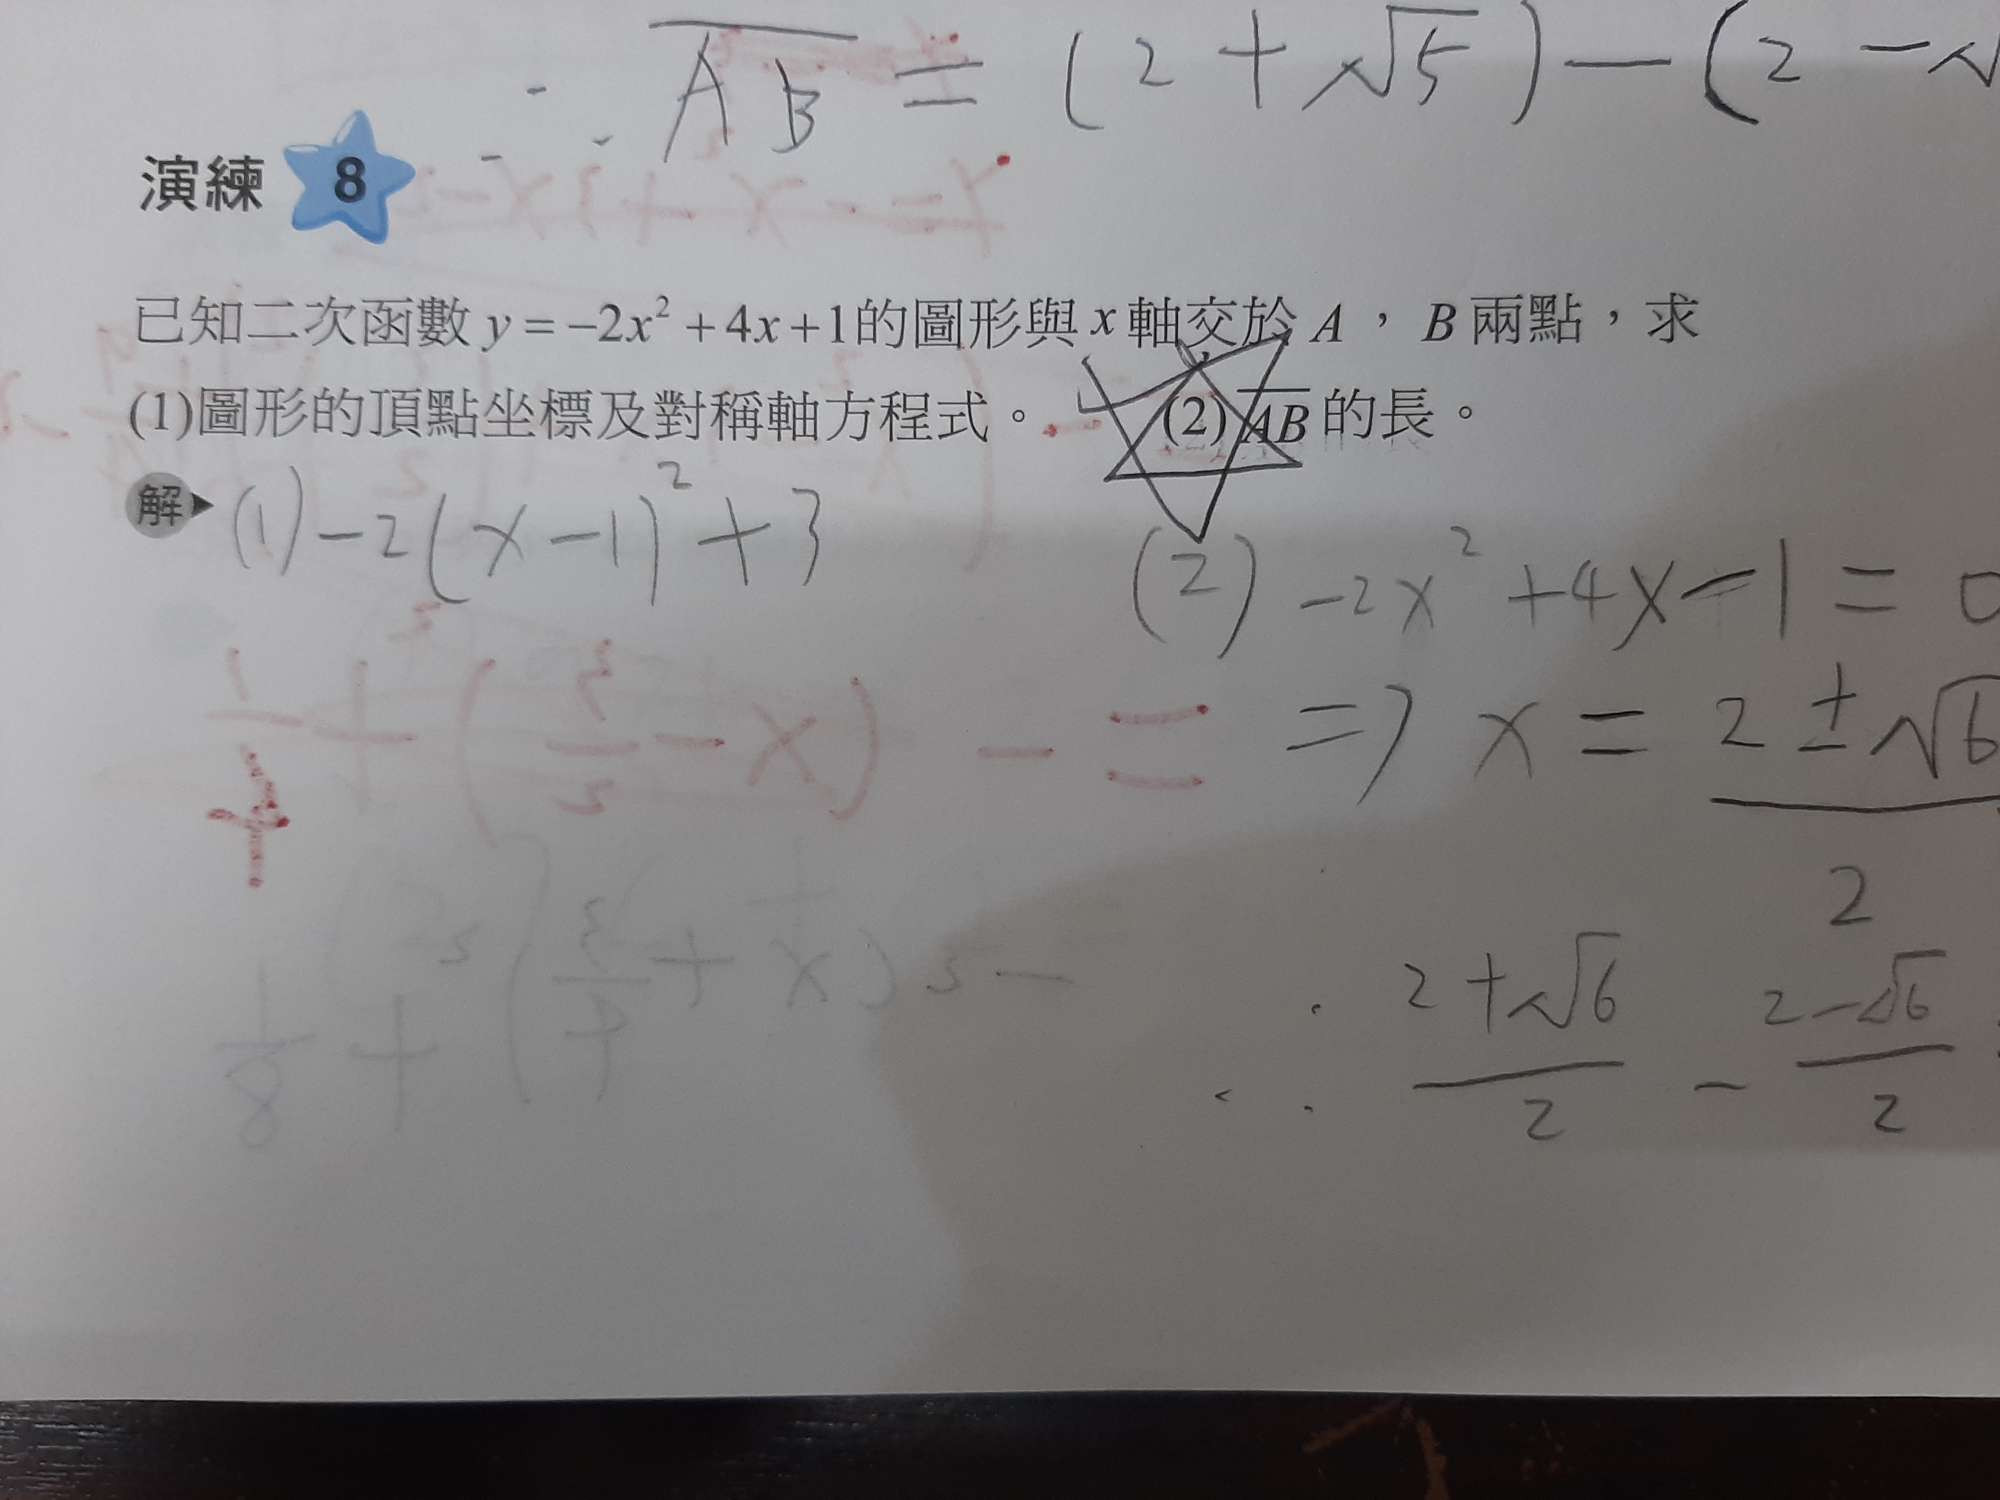 ∴ AB = (2 + √5) - (2 - √
演練 8
已知二次函數 y = -2x² + 4x + 1 的圖形與 x 軸交於 A， B 兩點，求
(1)圖形的頂點坐標及對稱軸方程式。 (2) AB 的長。
解 (1) -2(x-1)² + 3
(2) -2x² + 4x - 1 = 0
=> x = 2 ± √6
2
∴ 2+√6 - 2-√6
2 2